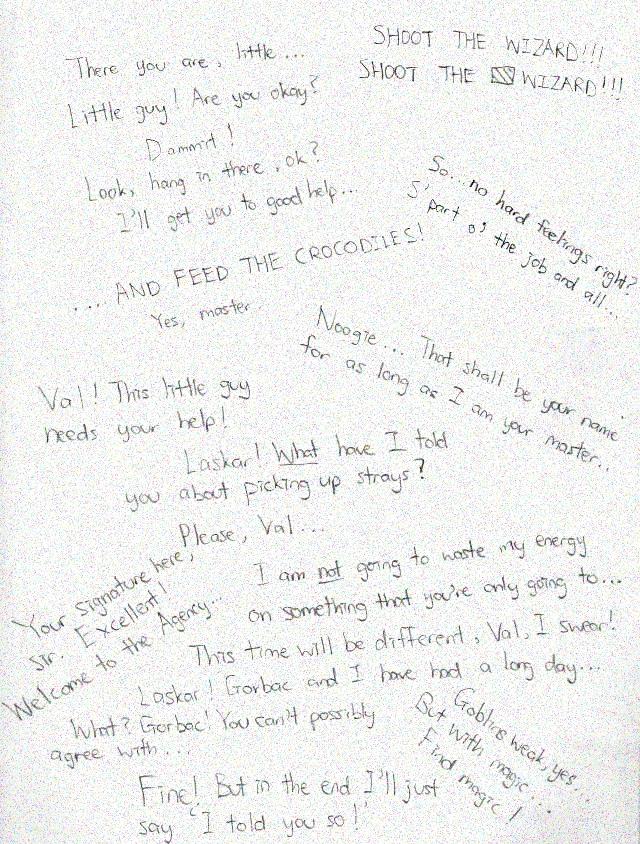 There you are, little...
Little guy! Are you okay?
Dammit!
Look, hang in there, ok?
I'll get you to good help...
SHOOT THE WIZARD!!!
SHOOT THE WIZARD!!!
So... no hard feelings right?
S' part o' the job and all...
... AND FEED THE CROCODILES!
Yes, master.
Noogie... That shall be your name
for as long as I am your master...
Val! This little guy
needs your help!
Laskar! What have I told
you about picking up strays?
Please, Val...
Your signature here,
sir. Excellent!
Welcome to the Agency...
I am not going to waste my energy
on something that you're only going to...
This time will be different, Val, I swear!
Laskar! Gorbac and I have had a long day...
What? Gorbac! You can't possibly
agree with...
Goblins weak, yes...
But with magic...
Find magic!
Fine! But in the end I'll just
say 'I told you so!'